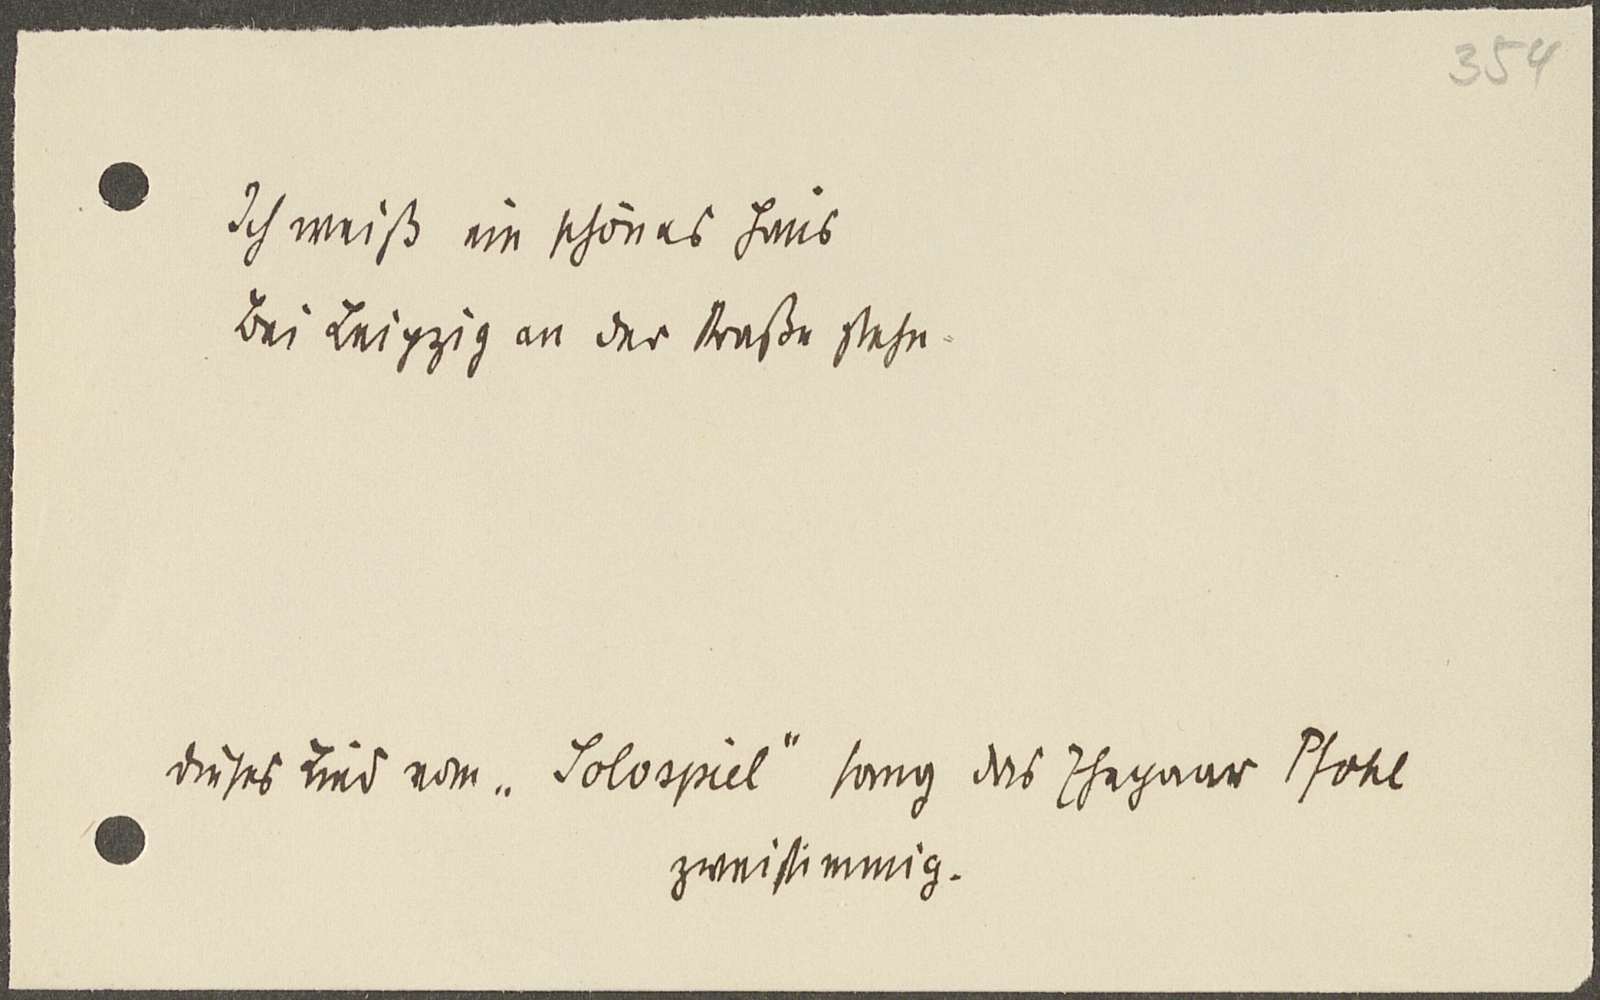 354
Ich weiß ein schönes Haus
Bei Leipzig an der Straße stehn.
dieses Lied vom „Solospiel“ sang das Ehepaar Pfohl
zweistimmig.